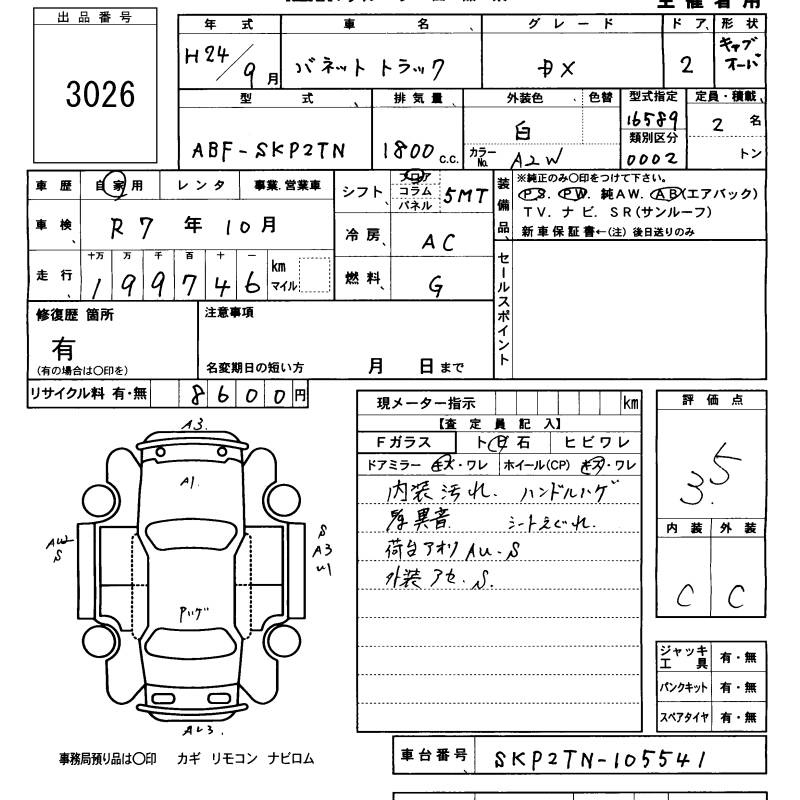 出品番号
3026
年式 車名 グレード ドア 形状
H24/9月 バネット トラック DX 2 キャブオーバ
型式 排気量 外装色 色替 型式指定 定員・積載
ABF-SKP2TN 1800 c.c. 白 16589 2 名
カラーNo. A2W 類別区分 0002 トン
車歴 自家用 レンタ 事業.営業車
シフト フロア コラム パネル 5MT
車検 R7年10月
冷房 AC
走行 十万 万 千 百 十 一
199746 km マイル
燃料 G
装備品 ※純正のみ○印をつけて下さい。
PS. PW. 純AW. AB(エアバック)
TV. ナビ. SR(サンルーフ)
新車保証書←(注) 後日送りのみ
セールスポイント
修復歴 箇所
有
(有の場合は○印を)
注意事項
名変期日の短い方 月 日まで
リサイクル料 有・無 8600円
現メーター指示 km
【査定員記入】
Fガラス トビ石 ヒビワレ
ドアミラー キズ・ワレ ホイール(CP) キズ・ワレ
内装汚れ. ハンドルハゲ
異音 シートえぐれ.
荷台アオリ AU.S
外装アセ.S.
評価点
3.5
内装 外装
C C
A3.
A1.
AW
S
S
A3
U1
Pハゲ
AU3.
ジャッキ工具 有・無
パンクキット 有・無
スペアタイヤ 有・無
事務局預り品は○印 カギ リモコン ナビロム
車台番号 SKP2TN-105541